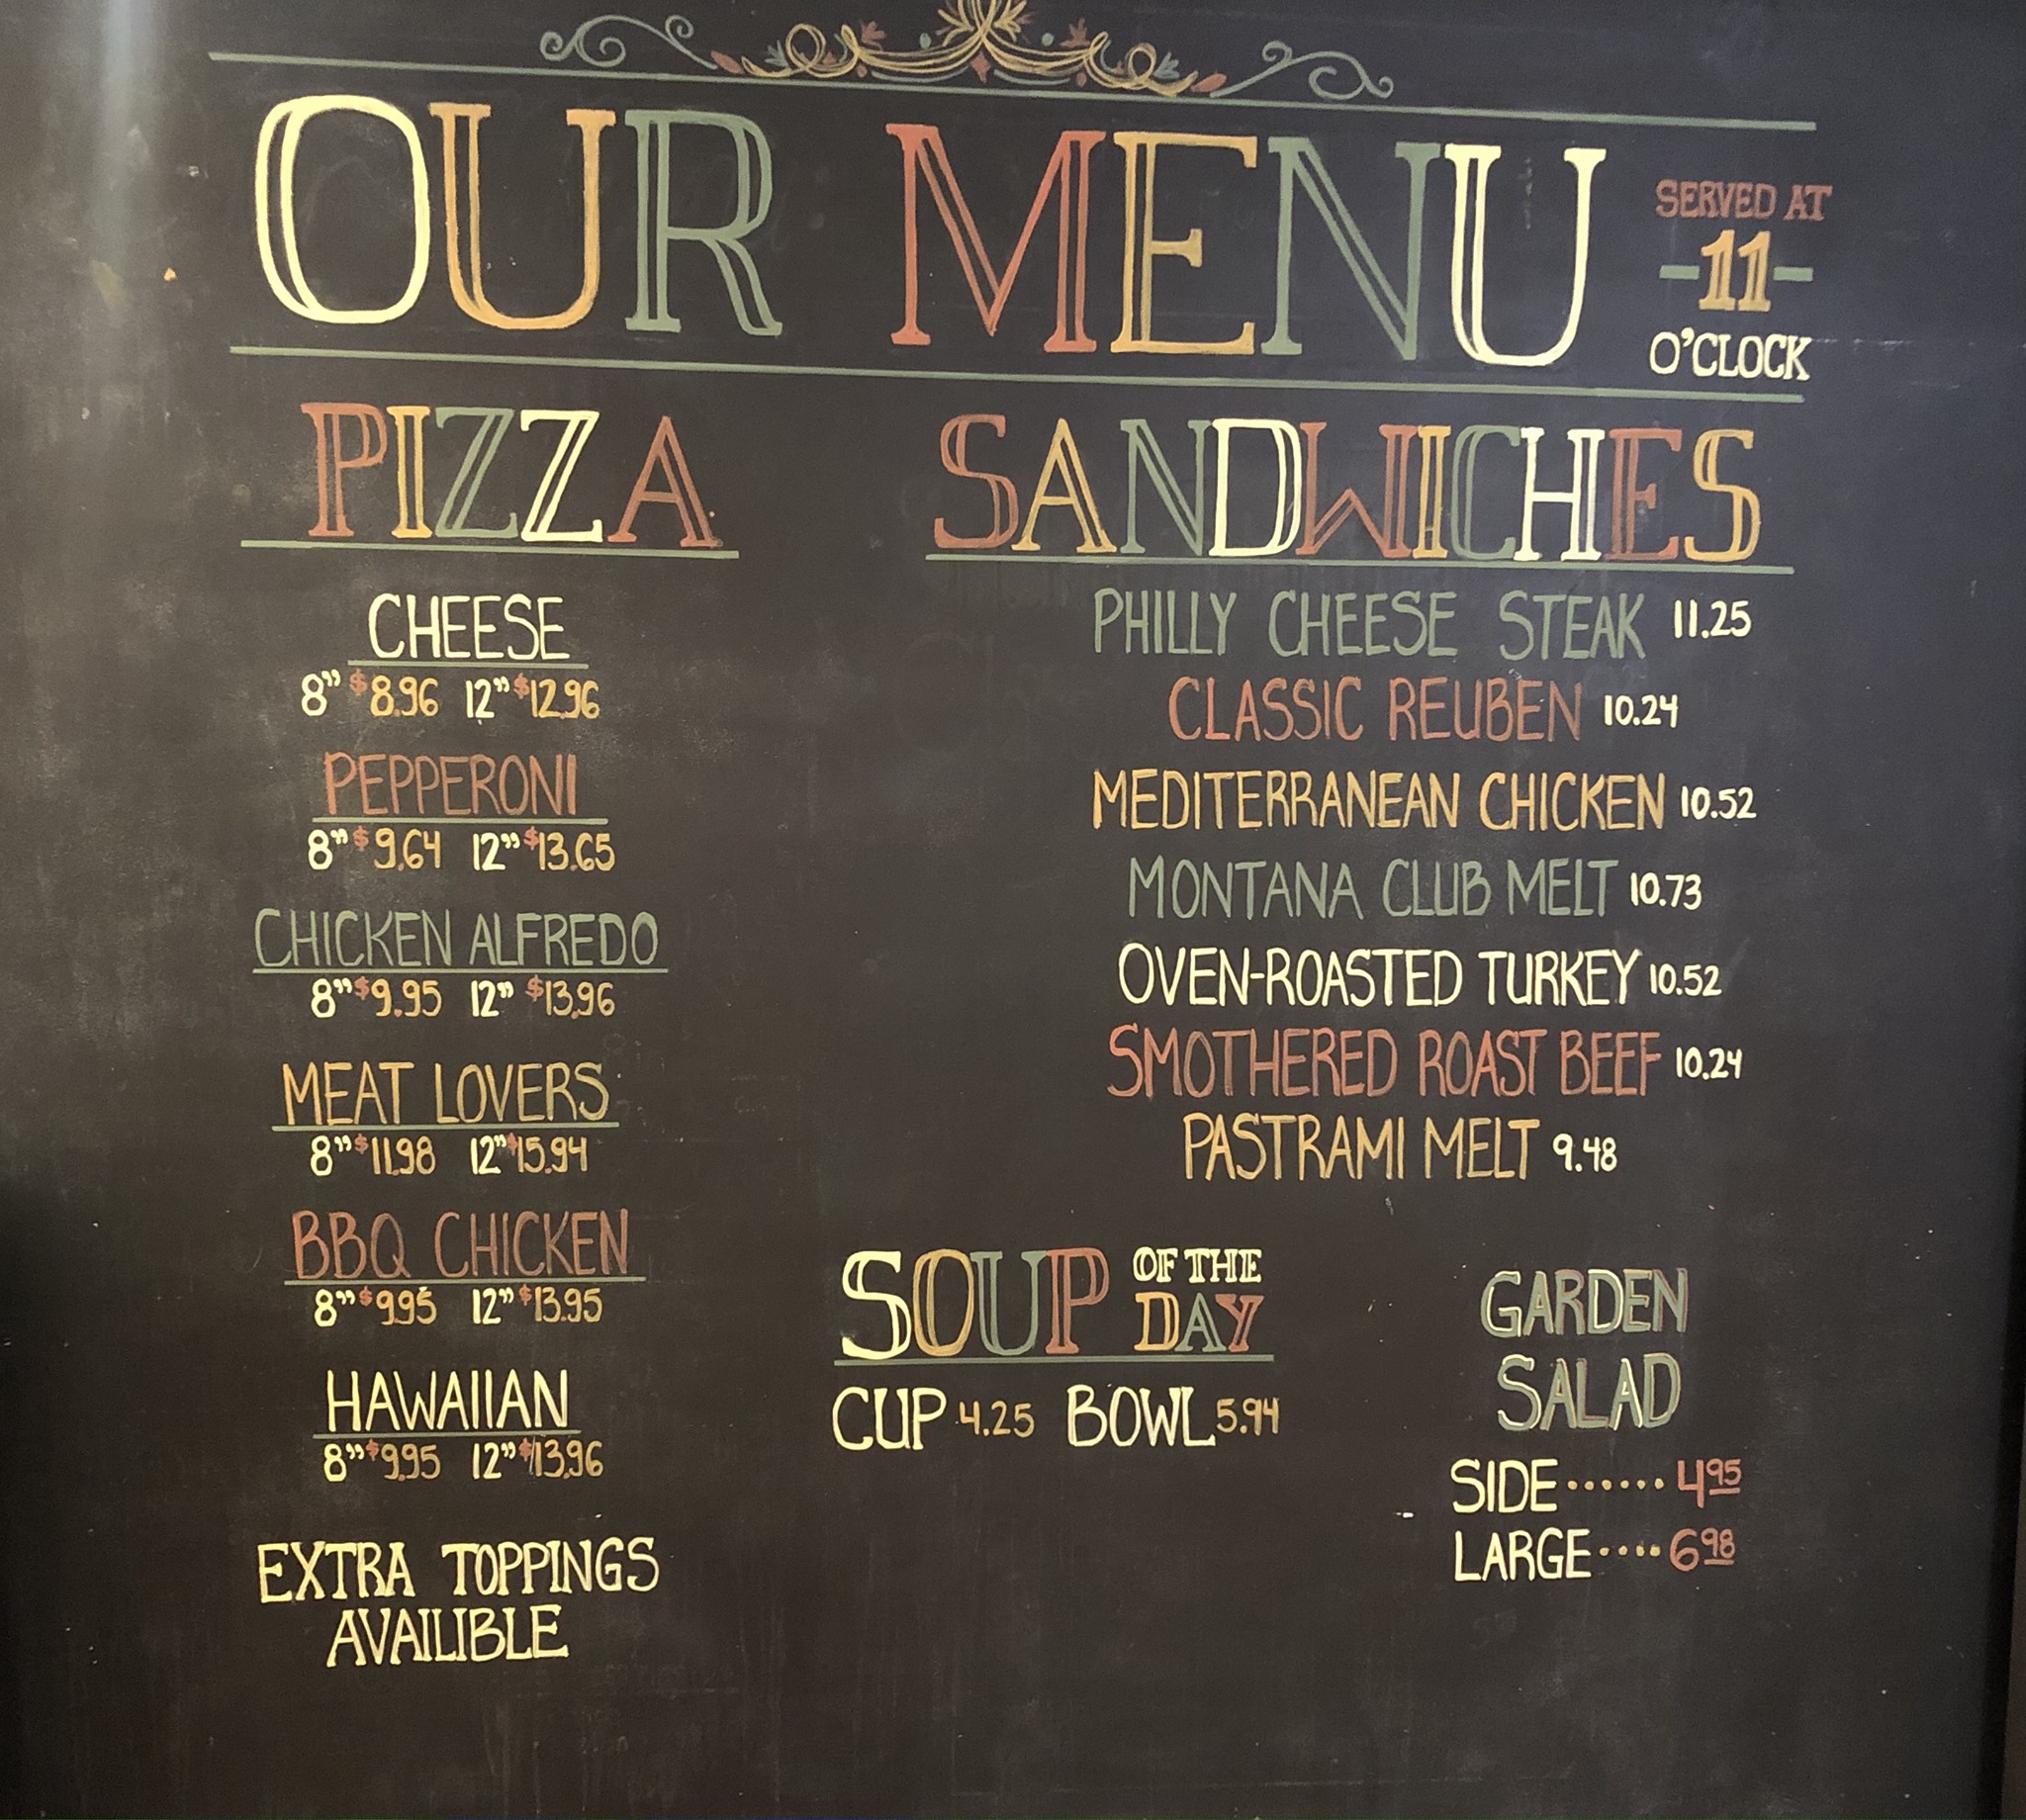 OUR MENU
SERVED AT
-11-
O'CLOCK
PIZZA
CHEESE
8" $8.96 12" $12.96
PEPPERONI
8" $9.64 12" $13.65
CHICKEN ALFREDO
8" $9.95 12" $13.96
MEAT LOVERS
8" $11.98 12" $15.94
BBQ CHICKEN
8" $9.95 12" $13.95
HAWAIIAN
8" $9.95 12" $13.96
EXTRA TOPPINGS
AVAILIBLE
SANDWICHES
PHILLY CHEESE STEAK 11.25
CLASSIC REUBEN 10.24
MEDITERRANEAN CHICKEN 10.52
MONTANA CLUB MELT 10.73
OVEN-ROASTED TURKEY 10.52
SMOTHERED ROAST BEEF 10.24
PASTRAMI MELT 9.48
SOUP OF THE
DAY
CUP 4.25 BOWL 5.94
GARDEN
SALAD
SIDE ...... 4.95
LARGE .... 6.98